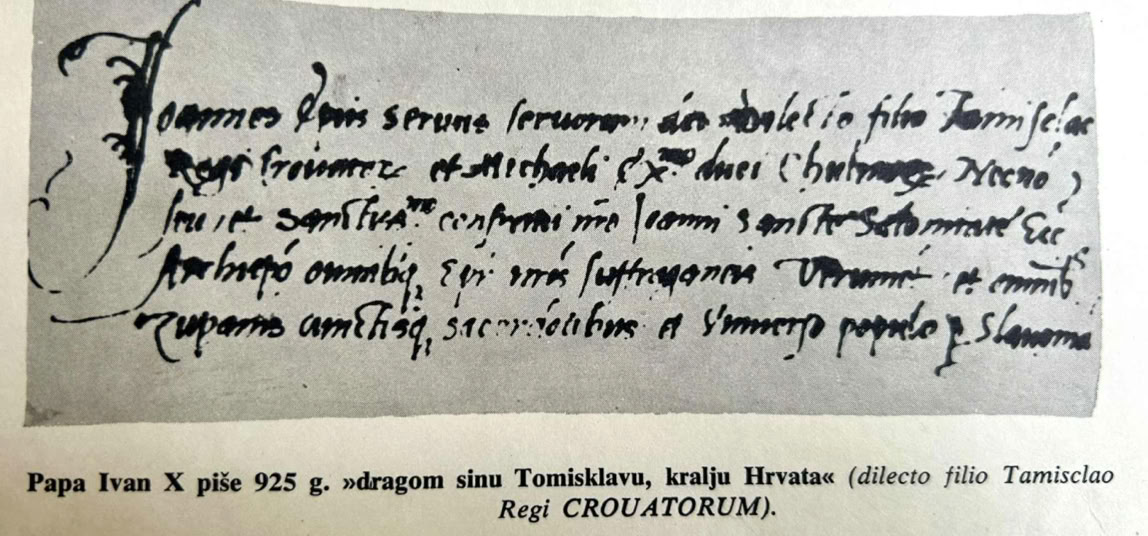 Joannes Ep̄us seruus seruorum dei dilecto filio Tamisclao
Regi Crouatorum et Michaeli Ex.mo duci Chulmorum Necnō
seu et Sanctiss.mo confratri nr̄o Joanni Sancte Salonitane Ecc
Archiep̄o omnibq; Ep̄i nr̄is suffraganeis Verumēt et omnib
Zupanis cunctisq; sacerdotibus et Vniuerso populo p Slauonia
Papa Ivan X piše 925 g. »dragom sinu Tomisklavu, kralju Hrvata« (dilecto filio Tamisclao
Regi CROUATORUM).